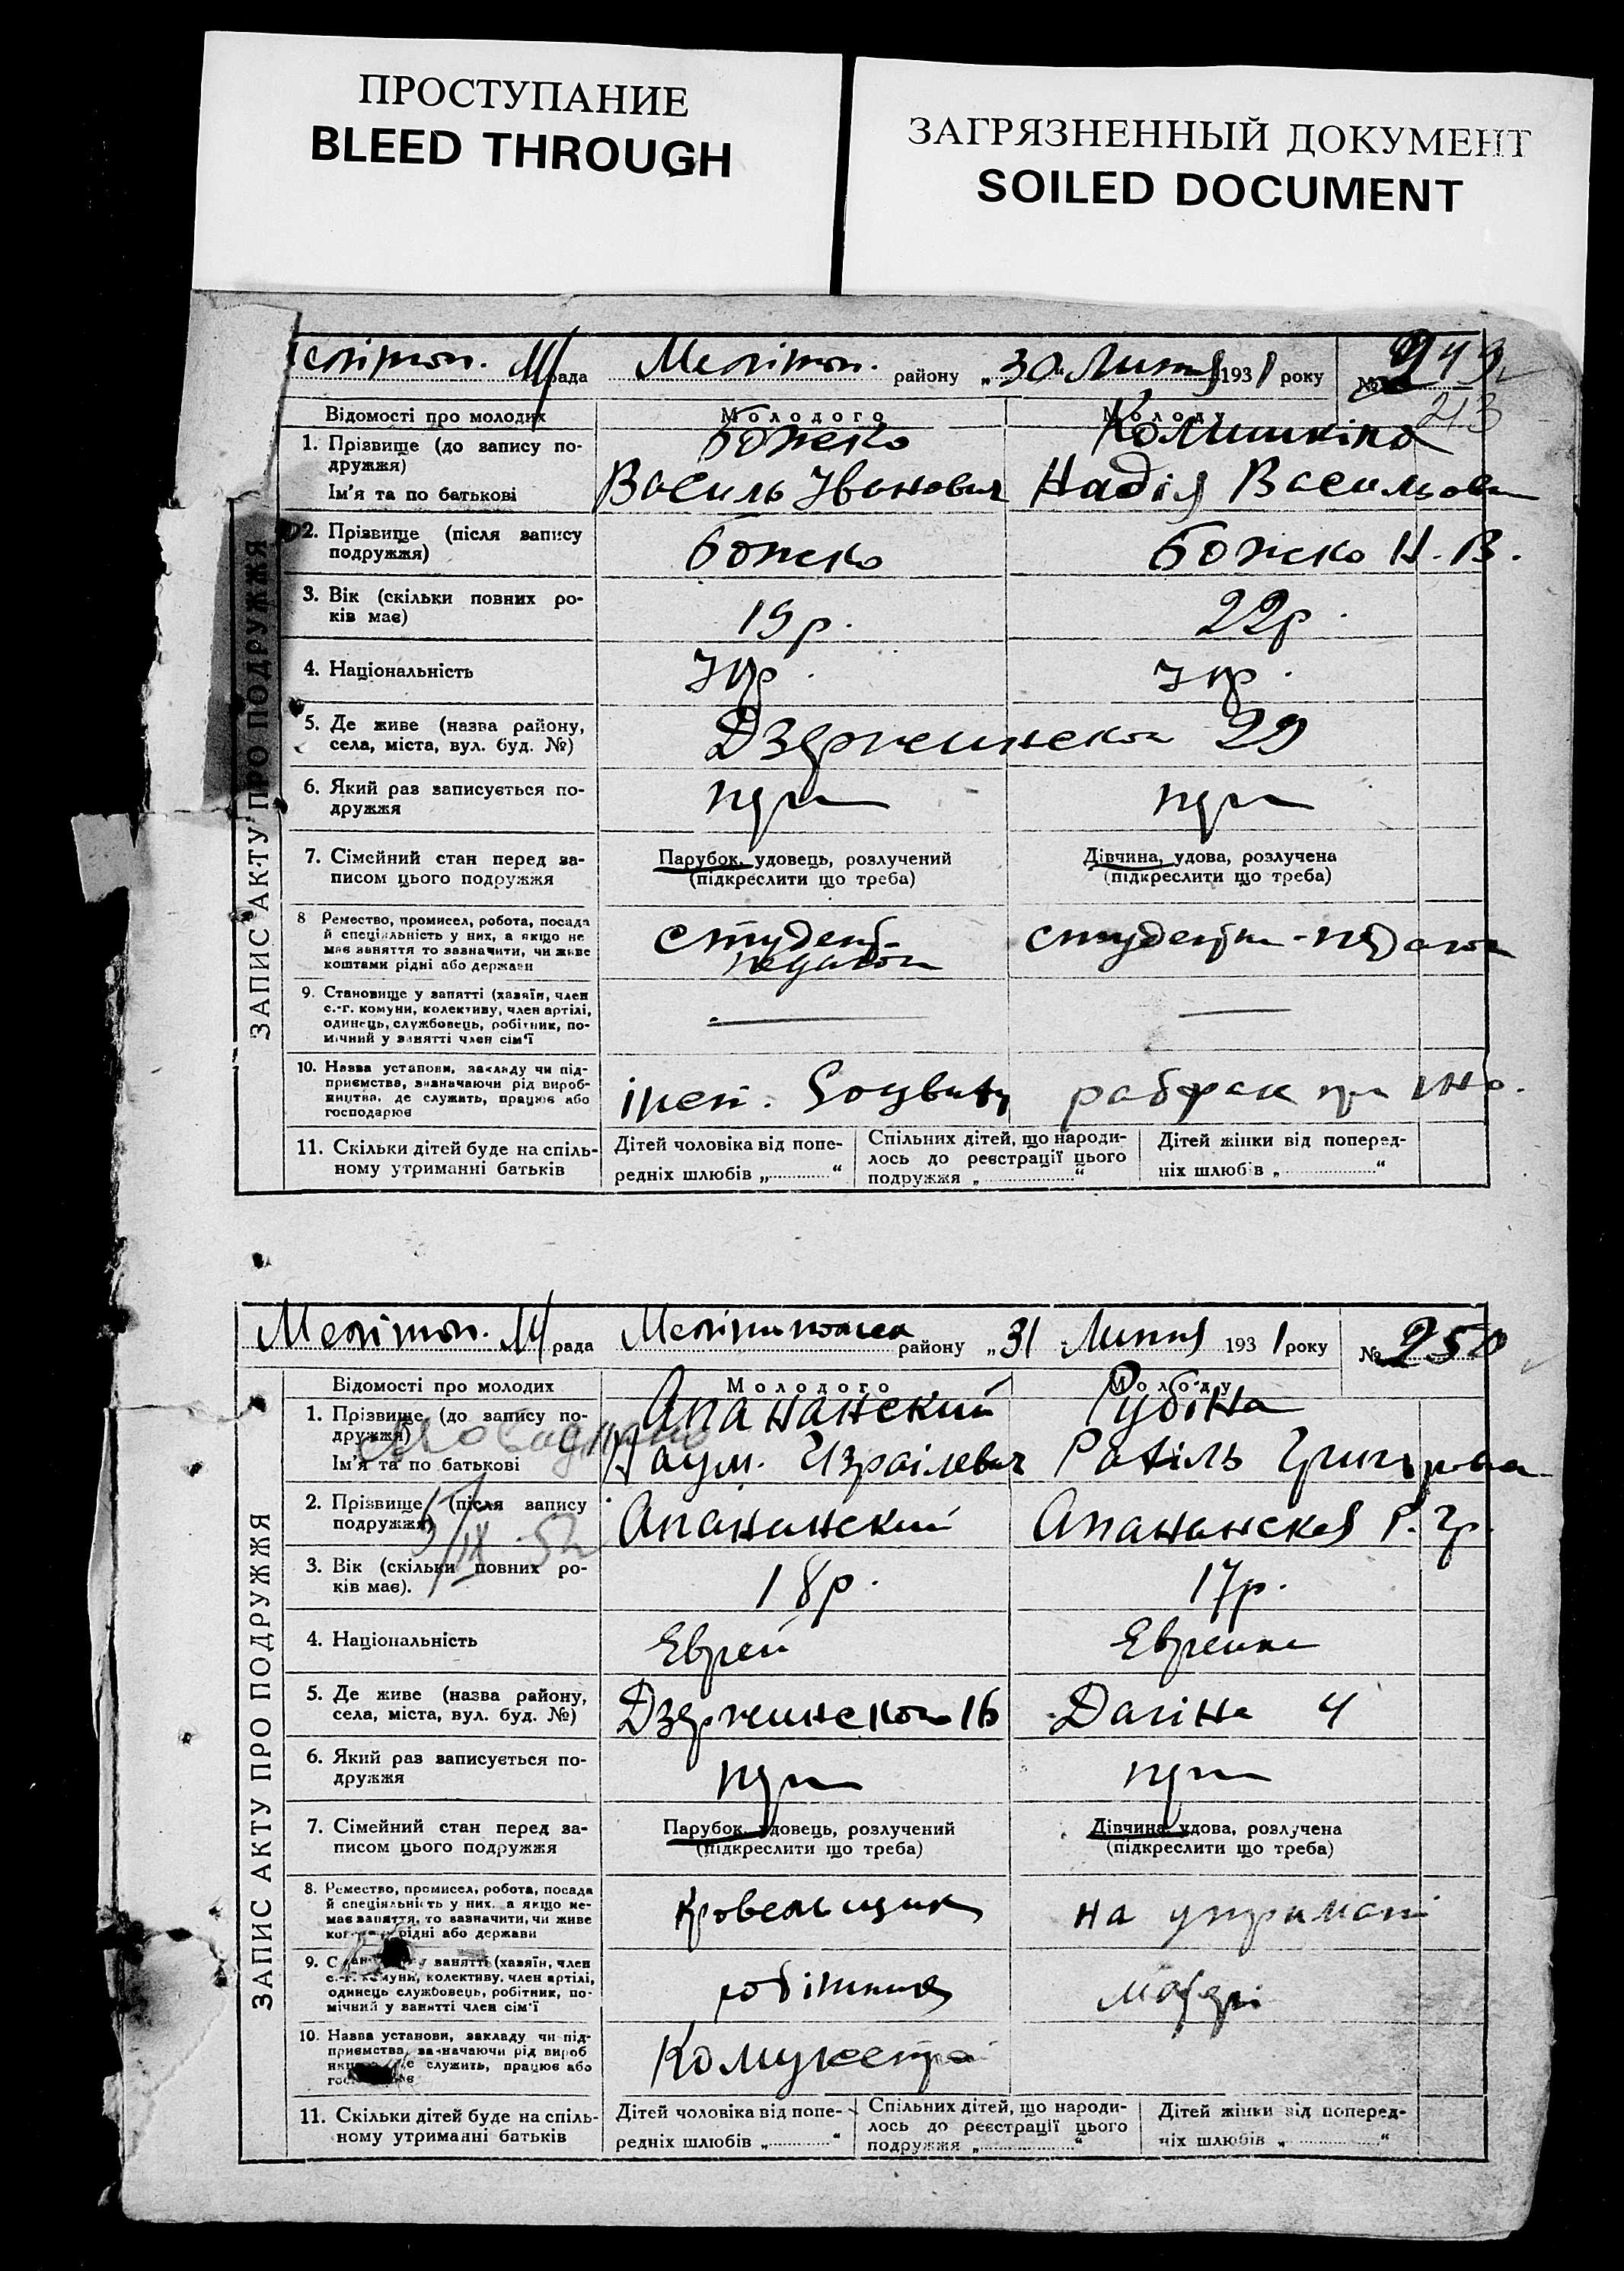 ПРОСТУПАНИЕ
BLEED THROUGH
ЗАГРЯЗНЕННЫЙ ДОКУМЕНТ
SOILED DOCUMENT
ЗАПИС АКТУ ПРО ПОДРУЖЖЯ
рада Меліт. району „30“ Липня 1931 року № 249
213
Відомості про молодих Молодого Молоду
1. Прізвище (до запису по-
дружжя)
Ім'я та по батькові
Божко
Василь Іванович Надія Васильов
2. Прізвище (після запису
подружжя)
Божко Божко Н. В.
3. Вік (скільки повних ро-
ків має)
19 р. 22 р.
4. Національність Укр. Укр.
5. Де живе (назва району,
села, міста, вул. буд. №)
29
6. Який раз записується по-
дружжя
7. Сімейний стан перед за-
писом цього подружжя
Парубок, удовець, розлучений
(підкреслити що треба)
Дівчина, удова, розлучена
(підкреслити що треба)
8 Ремество, промисел, робота, посада
й спеціяльність у них, а якщо не
має заняття то зазначити, чи живе
коштами рідні або держави
студент
9. Становище у занятті (хазяїн, член
с.-г. комуни, колективу, член артілі,
одинець, службовець, робітник, по-
мічний у занятті член сім'ї
10. Назва установи, закладу чи під-
приємства, визначаючи рід вироб-
ництва, де служить, працює або
господарює
рабфак при
11. Скільки дітей буде на спіль-
ному утриманні батьків
Дітей чоловіка від попе-
редніх шлюбів „ “
Спільних дітей, що народи-
лось до реєстрації цього
подружжя „ “
Дітей жінки від поперед-
ніх шлюбів „ “
ЗАПИС АКТУ ПРО ПОДРУЖЖЯ
Меліт. рада району „31 Липня 1931 року № 250
Відомості про молодих Молодого Молоду
1. Прізвище (до запису по-
дружжя)
Ім'я та по батькові
Апананский Рубіна
Наум. Ізраілевич Рахіль
2. Прізвище (після запису
подружжя)
Апананский Апананская Р. Гр.
IX 52
3. Вік (скільки повних ро-
ків має).
18 р. 17 р.
4. Національність Еврей Еврейка
5. Де живе (назва району,
села, міста, вул. буд. №)
16 4
6. Який раз записується по-
дружжя
7. Сімейний стан перед за-
писом цього подружжя
Парубок, удовець, розлучений
(підкреслити що треба)
Дівчина, удова, розлучена
(підкреслити що треба)
8. Ремество, промисел, робота, посада
й спеціяльність у них, а якщо не-
має заняття, то зазначити, чи живе
рідні або держави
кровельщик на
9. занятті (хазяїн, член
с.-г. комуни, колективу, член артілі,
одинець службовець, робітник, по-
мічний у занятті член сім'ї
робітник
10. Назва установи, закладу чи під-
приємства, зазначаючи рід вироб
служить, працює або
11. Скільки дітей буде на спіль-
ному утриманні батьків
Дітей чоловіка від попе-
редніх шлюбів „ “
Спільних дітей, що народи-
лось до реєстрації цього
подружжя „ “
Дітей жінки від поперед-
ніх шлюбів „ “